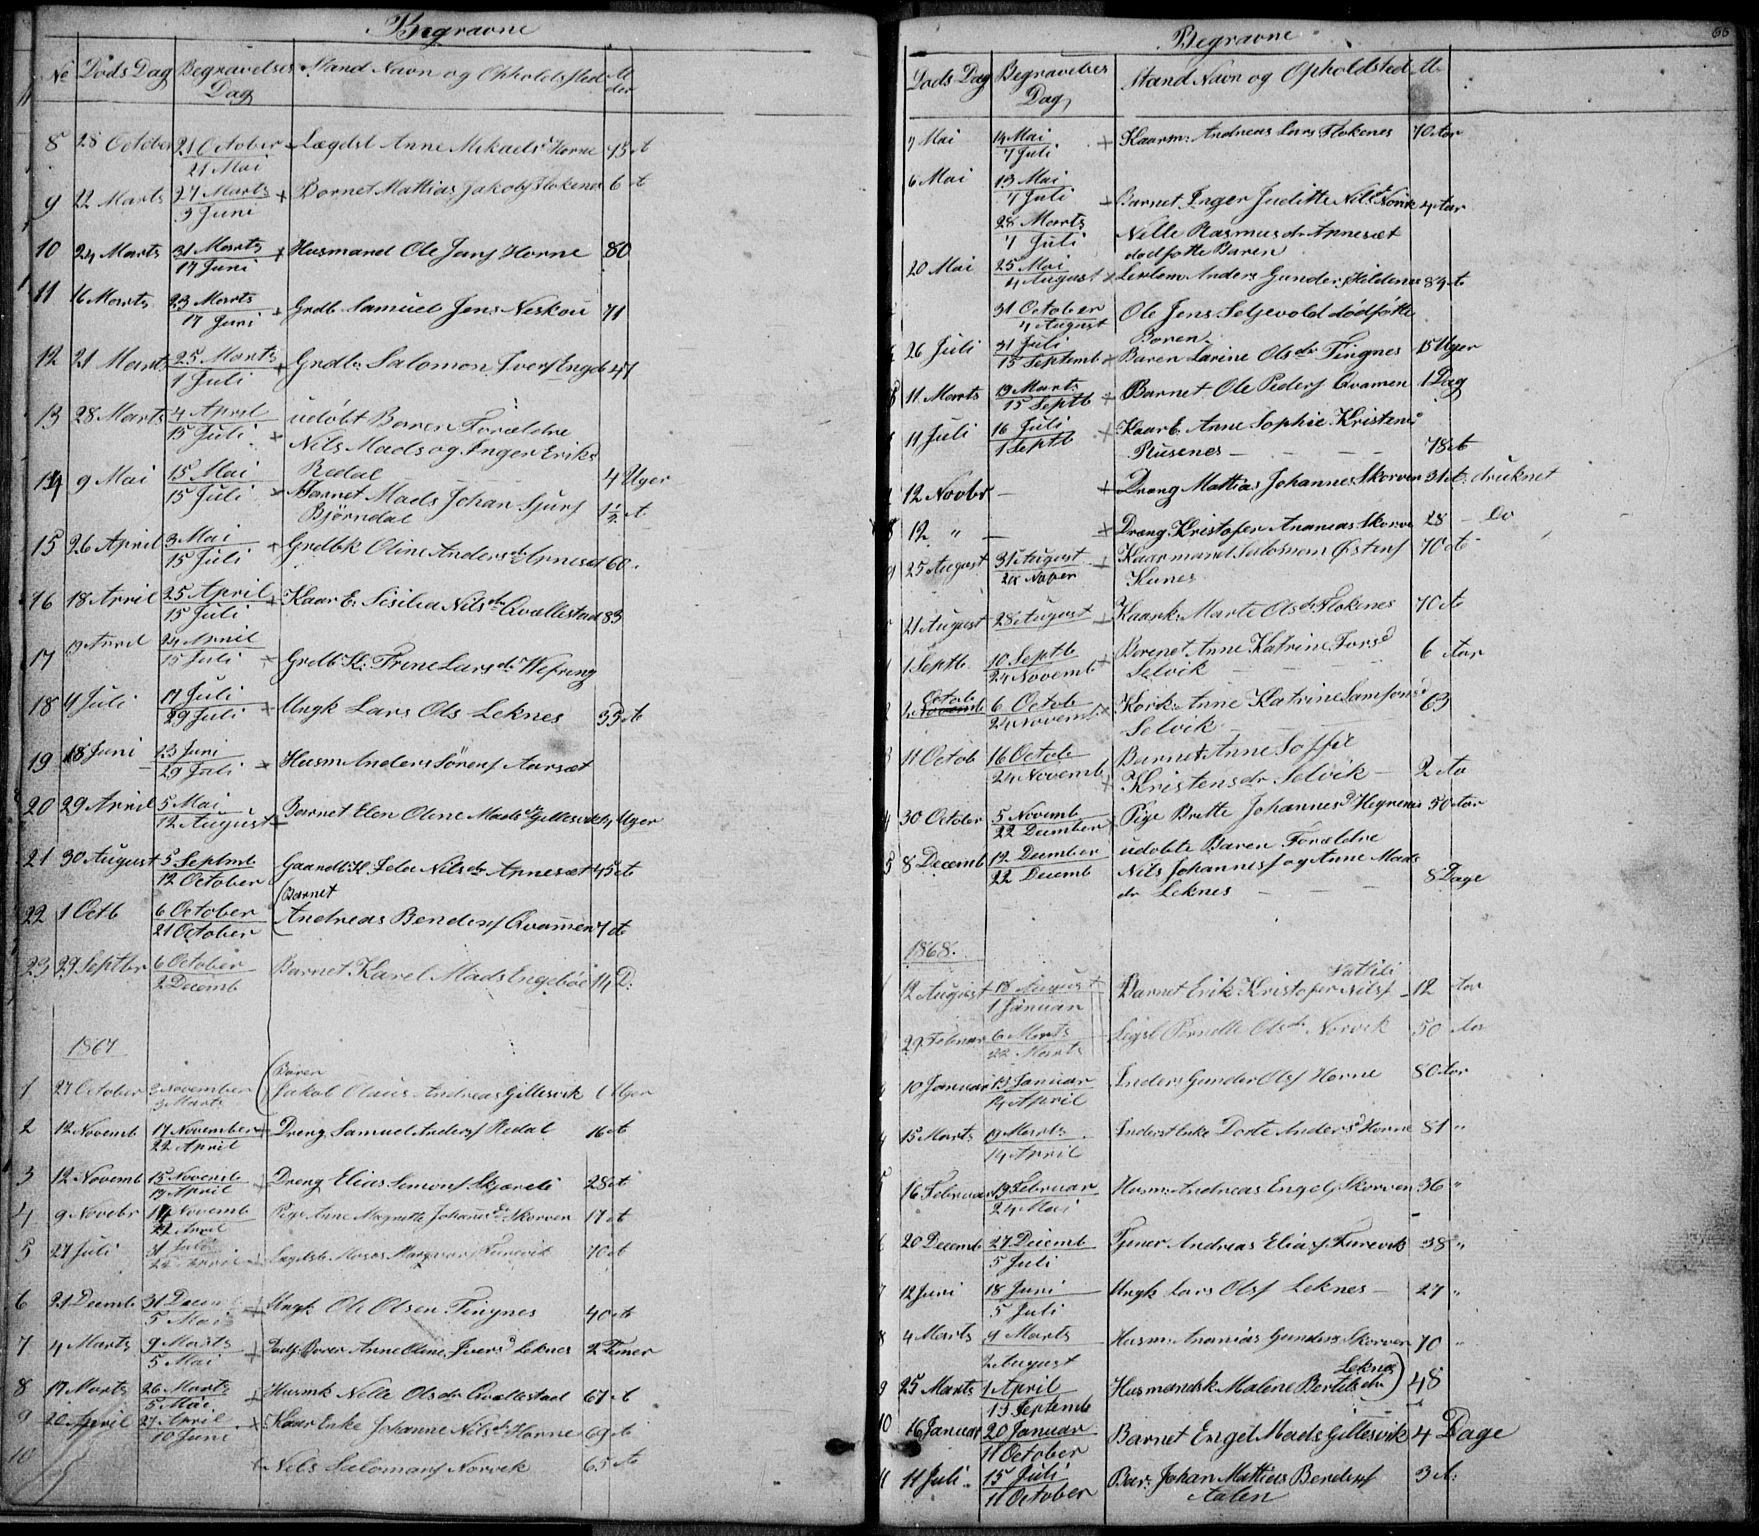 Begravne
No Döds Dag Begravelses Dag Stand Navn og Opholdssted Alder
8 28 October 21 October Lægdsl Anne Mikaelsd Horne 75 A
21 Mai
9 22 Marts 27 Marts + Bornet Mattias Jakobs Flokenes 6 A
3 Juni
10 24 Marts 31 Marts + Husmand Ole Jens Horne 80
17 Juni
11 16 Marts 23 Marts + Grdb Samuel Jens Neskou 71
17 Juni
12 21 Marts 25 Marts + Grdb Salomon Ivers Engeb 47
1 Juli
13 28 Marts 4 April udöbt Baren Forældre
15 Juli + Nils Mads og Inger Eriks
Redal 4 Uger
14 9 Mai 15 Mai
15 Juli + Barnet Mads Johan Sjurs
Björndal 1½ A
15 26 April 3 Mai + Grdbk Oline Anders dr Apneset 60
15 Juli
16 18 April 25 April + Kaar E. Sisilia Nils dr Qvallestad 83
15 Juli
17 April 24 April
15 Juli + Grdb K. Trine Lars dr Wefring
18 11 Juli 17 Juli
29 Juli + Ungk Lars Ols Leknes 35 A
19 18 Juni 23 Juni
29 Juli + Husm Anders Sörens Aarsæt
20 29 April 5 Mai
12 August Barnet Elen Oline Madsd Gillesvik 4 Uger
21 30 August 5 Septmb Gaardb K. Nilsdr Apnesæt 45 A
12 October
22 1 Octb 6 October (Barnet
21 October Andreas Benders Qvammen 7 A
23 29 Septbr 6 October Barnet Karel Mads Engeböe 14 D.
2 Decemb
1867
1 27 October 3 November (Baren
3 Marts Jakob Olaus Andreas Gillesvik Uger
2 12 Novemb 17 November + Dreng Samuel Anders Redal 16 A
22 April
3 12 Novemb 15 Novemb Dreng Elias Simons Skjareli 28 A
19 April
4 9 Novbr 14 Novemb Pige Anne Magrette Johannesd Skorven 17 A
22 April
5 27 Juli 31 Juli
Lægdsl. Moses Furevik 70 A
6 21 Decemb 31 Decemb + Ungk Ole Olsen Tingnes 40 A
5 Mai
7 4 Marts 9 Marts + Baren Anne Oline Iversd Leknes 2 Timer
5 Mai
8 17 Marts 26 Marts + Husmk Nille Ols dr Qvallestad 67 A
5 Mai
9 20 April 27 April + Kaar Enke Johanne Nilsd Horne 69 A
10 Juni
10 Nils Salomons Norvik 65 A
Begravne 66
Döds Dag Begravelses Dag Stand Navn og Opholdsted Al.
7 Mai 14 Mai + Kaarm. Andreas Lars Flokenes 70 Aar
7 Juli
6 Mai 13 Mai
7 Juli + Barnet Inger Juditte Nilsd Norvik 4 Aar
28 Marts Nille Rasmus dr Apnesæt
7 Juli dödfötte Baren
20 Mai 25 Mai
4 August + Anders Gunders Hildenes 84 A
31 October Ole Jens Seljevold dödfötte
4 August Boren
26 Juli 31 Juli
15 Septemb + Baren Larine Ols dr Tingnes 15 Uger
11 Marts 19 Marts + Barnet Ole Peders Qvamen 1 Dag
15 Septb
11 Juli 16 Juli + Kaar E. Anne Sophie Kristensd
1 Septb Rusenes 78 A
12 Novbr — + Dreng Mattias Johannes Skorven 31 A. druknet
12 " — + Dreng Kristofer Ananias Skorve 28 — Do
25 August 31 August + Kaarmand Salomon Östens 70 A
24 Novber Kunes
21 August 28 August + Kaark. Marte Ols dr Flokenes 70 A
1 Septb. 10 Septb + Borenet Anne Katrine Torsd 6 Aar
24 Novemb Selvik
Octob
Novemb 6 Octob + Kork. Anne Katrine Samsonsd 69
24 Novemb Selvik
11 Octob 16 Octob Barnet Anne Soffie
24 Novemb + Kristensdr Selvik — 2 Aa
30 October 5 Novemb + Pige Britte Johannesd Hegrenes 50 Aar
22 December
8 Decemb 12 December udobte Baren Forældre
22 Decemb Nils Johanness og Anne Mads
dr Leknes 8 Dage
1868.
12 August 18 August Barnet Erik Kristofer Nils 12 Aar
1 Januar
29 Februar 6 Marts Legsl Pernille Ols dr Norvik 50 Aar
22 Marts
10 Januar 13 Januar Inders Gunder Ols Horne 80 Aar
14 April
15 Marts 19 Marts Inderst Enke Dorte Andersd Horne 81 "
14 April
16 Februar 19 Februar Husm. Andreas Engels Skorven 36 "
24 Mai
20 Decemb 27 Decemb Tjener Andreas Elias Furevik 38 "
5 Juli
12 Juni 18 Juni Ungk Lars Ols Leknes — 27 "
5 Juli
8 4 Marts 9 Marts Husm. Ananias Gunders Skorven 70 "
2 August
9 25 Marts 1 April Husmandsk Malene Bertels dr Leknes) 48
13 Septemb
10 16 Januar 20 Januar Barnet Engel Mads Gillesvik 4 Dage
11 October
11 11 Juli 15 Juli Bar. Johan Mattias Benders 3 A.
11 October Aalen